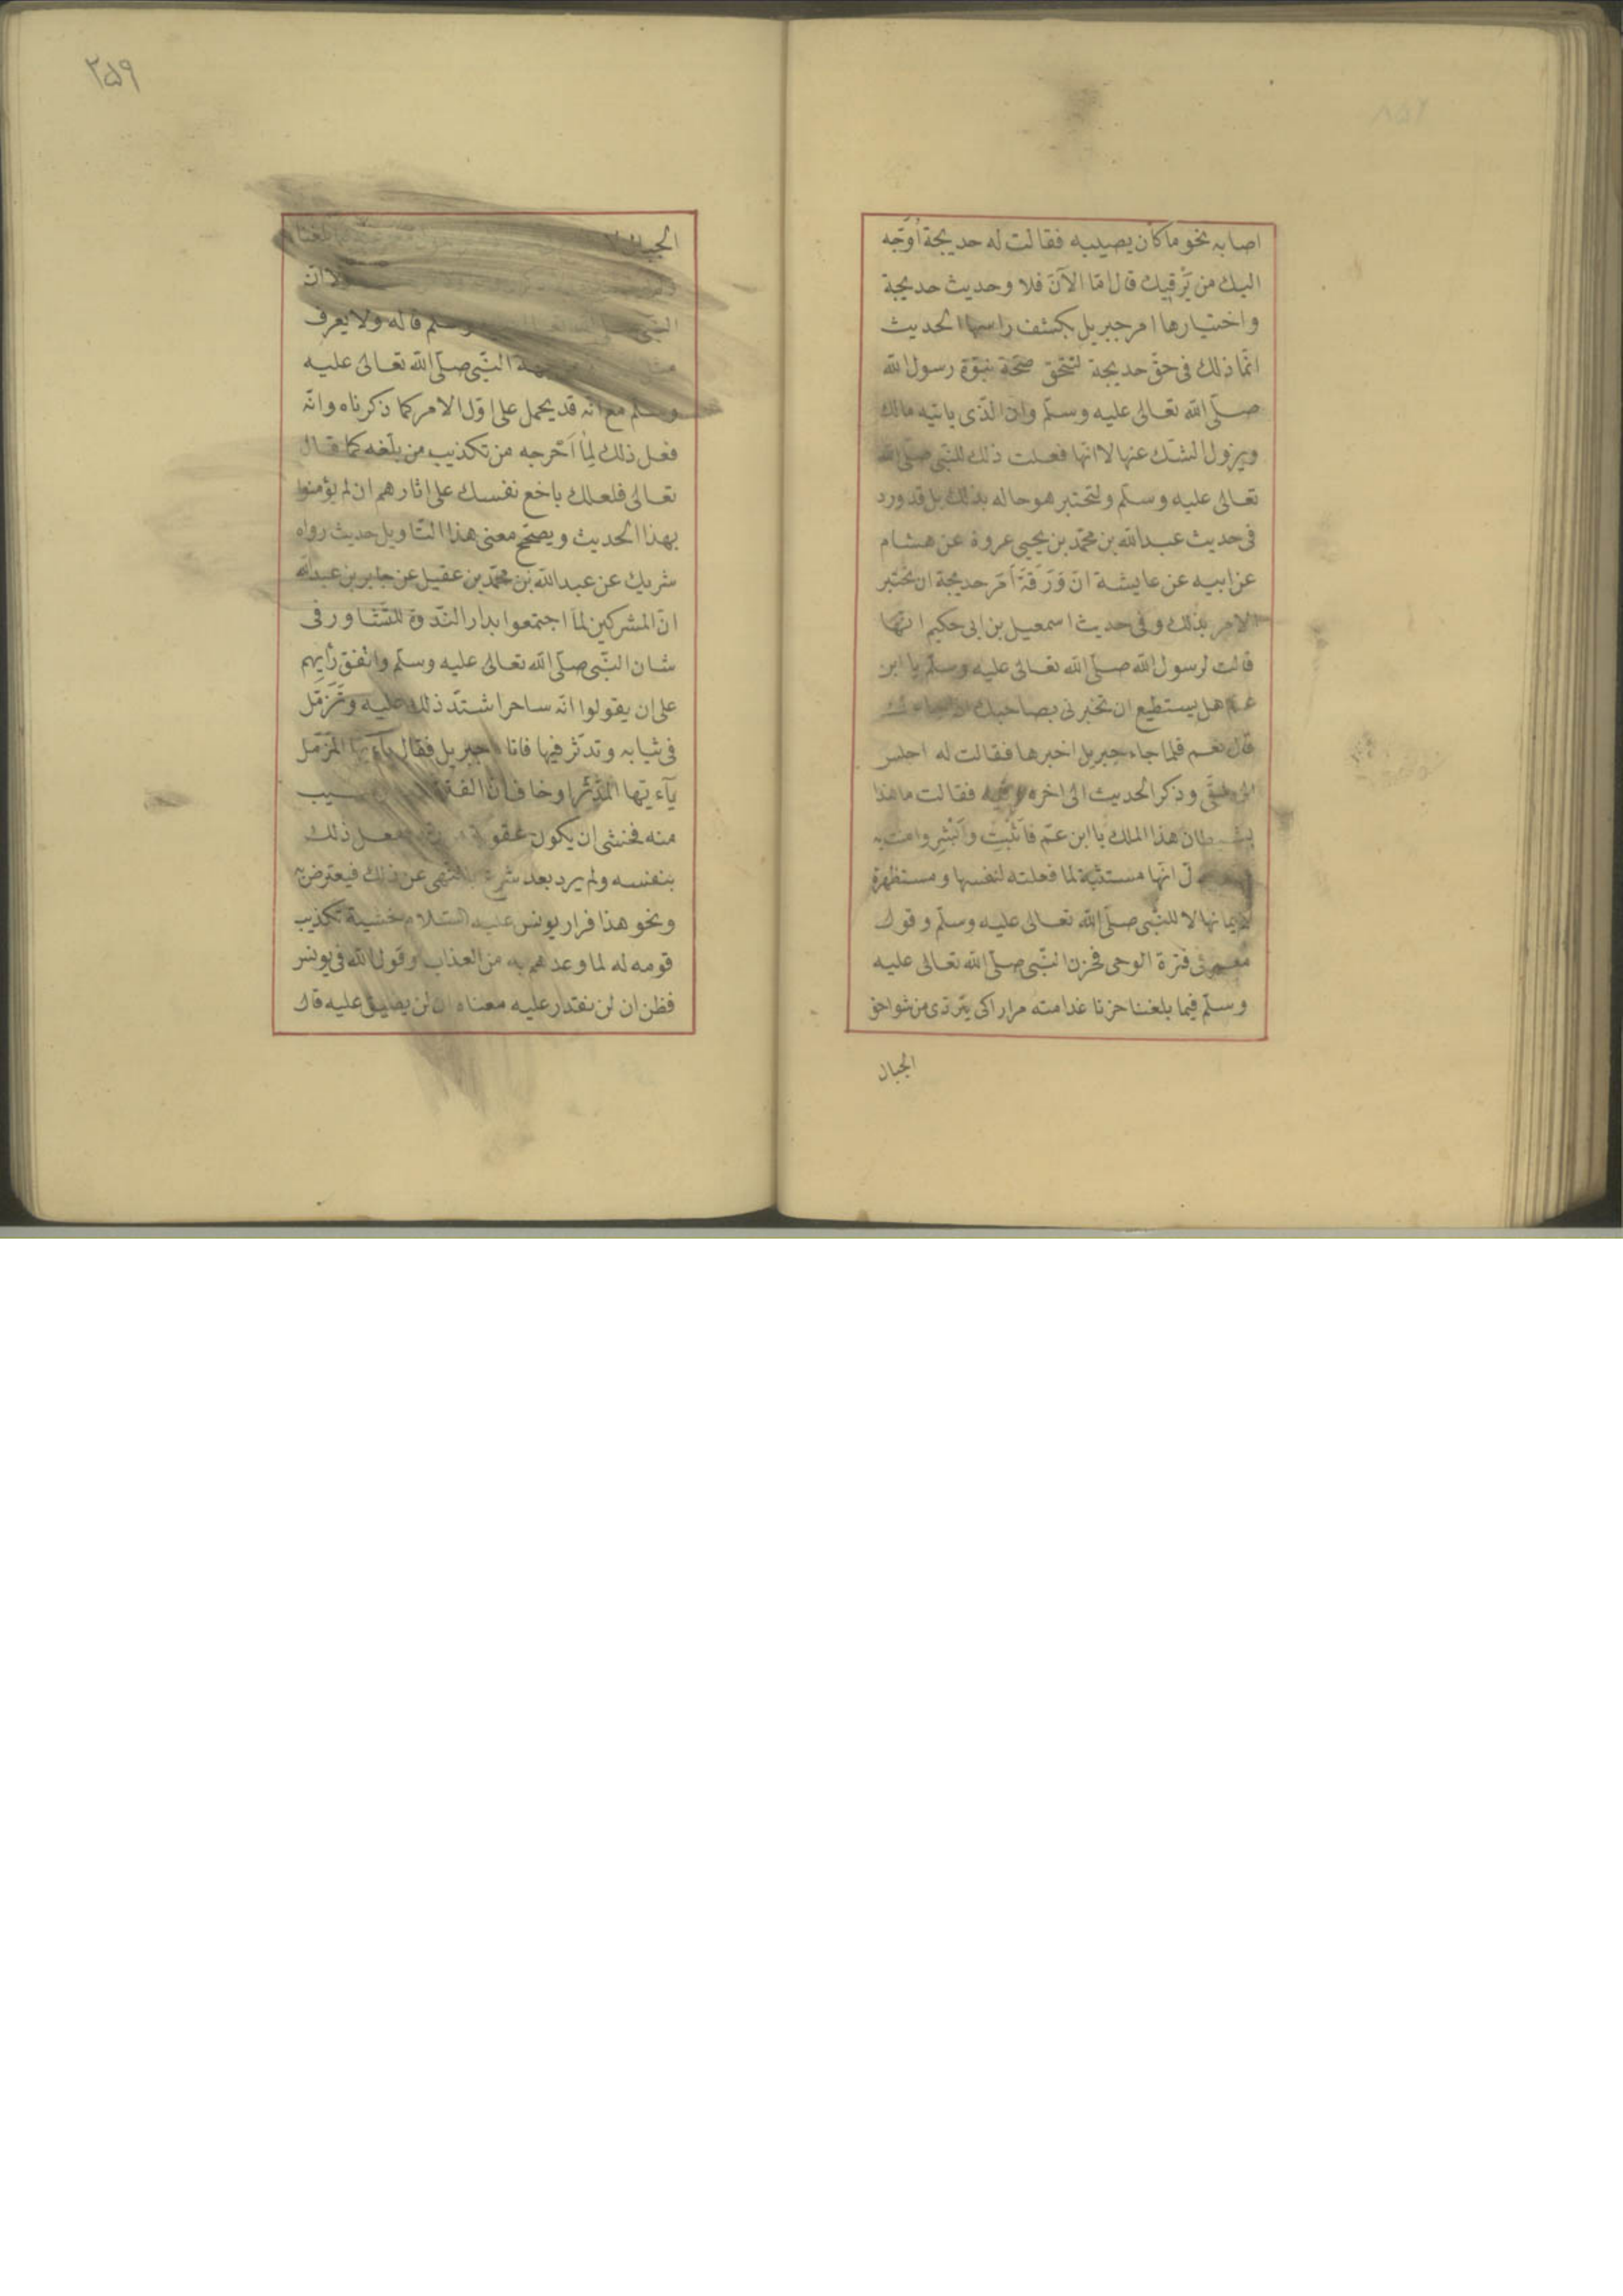 اصابه نحو ما كان يصيبه فقالت له خديجة اُوَجّه
اليك من يَرْقيك قال امّا الآنَ فلا وحديث خديجة
واختيارها امر جبريل بكشف راسها الحديث
انّما ذلك فى حقّ خديجة لتتحقّق صحّة نبوّة رسول الله
صلّى الله تعالى عليه وسلّم وان الّذى ياتيه مالك
ويزول الشّك عنها لا انها فعلت ذلك للنّبى صلّى الله
تعالى عليه وسلّم ولتختبر هو حاله بذلك بل قد ورد
فى حديث عبد الله بن محمّد بن يحيى عروة عن هشام
عن ابيه عن عايشة انّ وَرَقَةَ اَمَرَ خديجة ان تختبر
الامر بذلك وفى حديث اسمعيل بن ابى حكيم انّها
قالت لرسول الله صلّى الله تعالى عليه وسلّم يا ابن
عمّ هل يستطيع ان تخبرنى بصاحبك اذا جاءك
قال نعم فلما جاء جبريل اخبرها فقالت له اجلس
الى شقّى وذكر الحديث الى اخره وفيه فقالت ما هذا
بشيطان هذا الملك يا ابن عمّ فاَثْبِتْ واَبْشِر وامنت به
انّها مستثبتة لما فعلته لنفسها ومستظهرة
لايمانها لا للنّبى صلّى الله تعالى عليه وسلّم وقول
معمر فى فترة الوحى فحزن النّبى صلّى الله تعالى عليه
وسلّم فيما بلغنا حزنا غدا منه مرارا كى يتردّى من شواهق
الجبال
٢٥٩
الجبال بلغنا
لا انّ
النّبى صلّى الله تعالى وسلّم قاله ولا يعرف
مثل جهة النّبى صلّى الله تعالى عليه
وسلّم مع انّه قد يحمل على اوّل الامر كما ذكرناه وانّه
فعل ذلك لِمٰا اَخرجه من تكذيب من بلّغه كما قال
تعالى فلعلك باخع نفسك على اثارهم ان لم يؤمنوا
بهذا الحديث ويصحّح معنى هذا التّاويل حديث رواه
شريك عن عبد الله بن محمّد بن عقيل عن جابر بن عبد الله
انّ المشركين لمّا اجتمعوا بدار النّدوة للتّشاور فى
شان النّبى صلّى الله تعالى عليه وسلّم واتّفق رَأيهم
على ان يقولوا انّه ساحر اشتدّ ذلك عليه وتَزَمّل
فى ثيابه وتدثّر فيها فاتاه جبريل فقال يآءيّها المزّمّل
يآءيّها المدّثّر او خاف انّ الفترة بسبب
منه فخشى ان يكون عقوبة ففعل ذلك
بنفسه ولم يرد بعد شرع بالنّهى عن ذلك فيعترض به
ونحو هذا فرار يونس عليه السّلام خشية تكذيب
قومه له لما وعدهم به من العذاب وقول الله فى يونس
فظن ان لن نقدر عليه معناه ان لن يضيق عليه قال